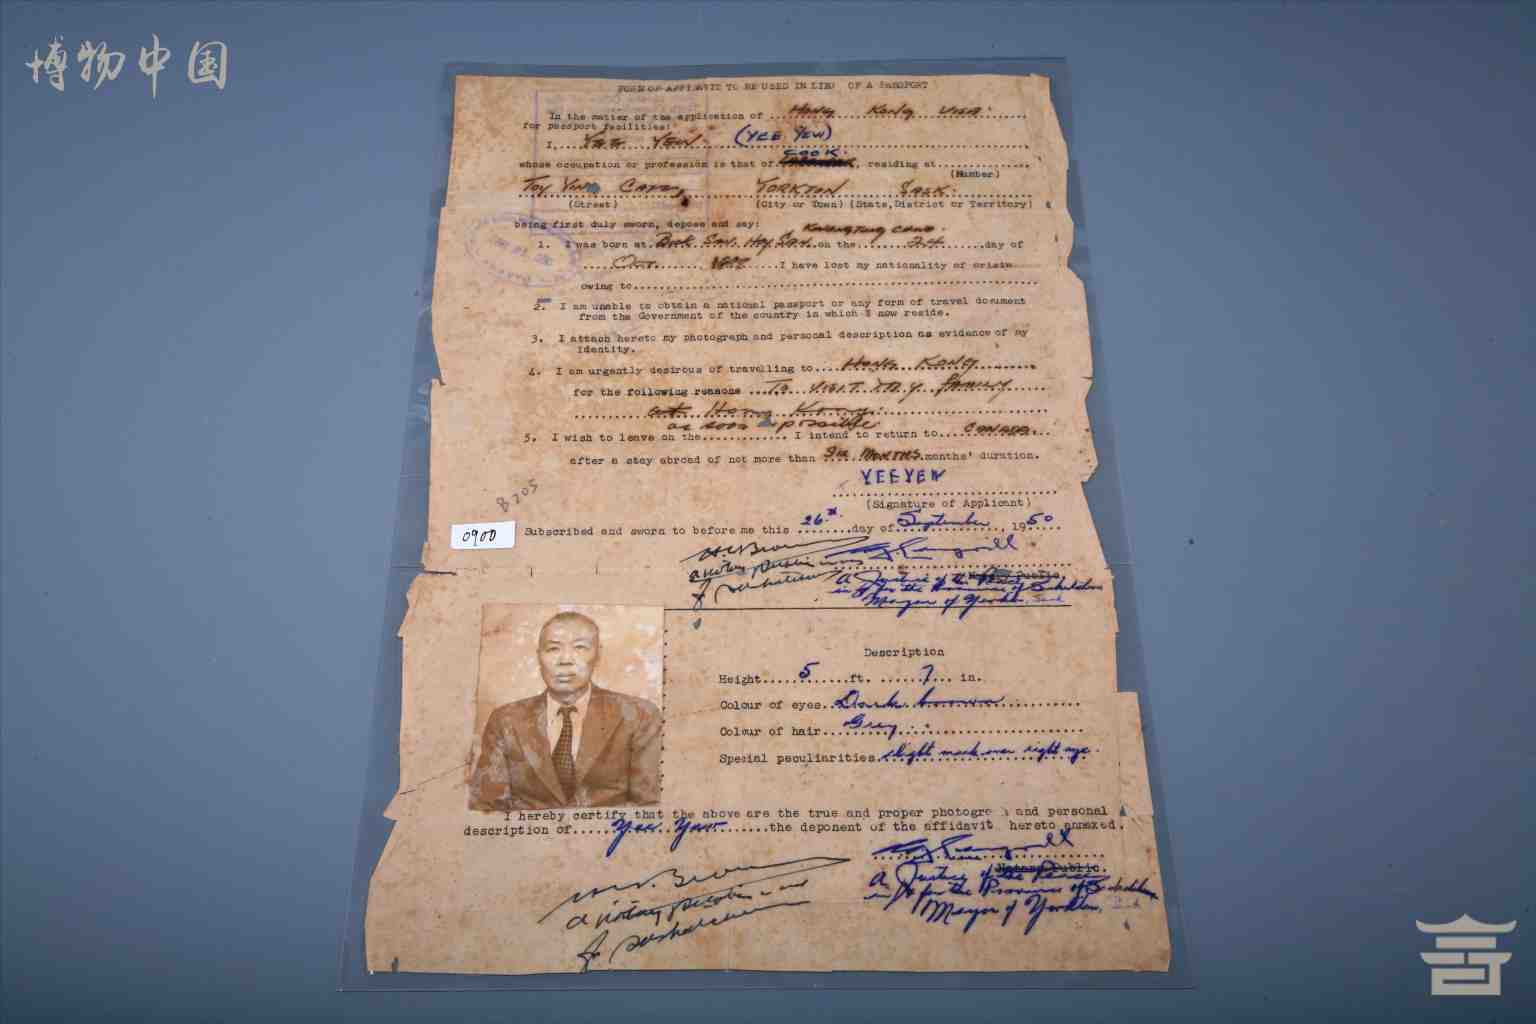 博物中国
FORM OF AFFIDAVIT TO BE USED IN LIEU OF A PASSPORT
In the matter of the application of HONG KONG VISA
for passport facilities:
I, YEE YEW (YEE YEW)
COOK
whose occupation or profession is that of, residing at
(Number)
TOY YING CAFE, YORKTON SASK.
(Street) (City or Town) (State, District or Territory)
being first duly sworn, depose and say: KWANGTUNG
1. I was born at SAN, HOY SAN on the 24 day of
I have lost my nationality of origin
owing to
2. I am unable to obtain a national passport or any form of travel document
from the Government of the country in which I now reside.
3. I attach hereto my photograph and personal description as evidence of my
identity.
4. I am urgently desirous of travelling to HONG KONG
for the following reasons TO VISIT MY FAMILY
at Hong Kong.
as soon as possible
5. I wish to leave on the I intend to return to CANADA.
after a stay abroad of not more than MONTHS months' duration.
YEE YEW
(Signature of Applicant)
8205
0900
Subscribed and sworn to before me this 26th day of September, 1950
a Notary Public in and
for Saskatchewan
Notary Public.
A Justice of the Peace
in & for the Province of Saskatchewan
Mayor of Yorkton, Sask
Description
Height 5 ft. 7 in.
Colour of eyes Dark brown
Colour of hair Grey
Special peculiarities slight mark over right eye.
I hereby certify that the above are the true and proper photogra and personal
description of Yee Yew the deponent of the affidavit hereto annexed.
Notary Public.
A Justice of the Peace
in & for the Province of Saskatchewan
Mayor of Yorkton, Sask
a Notary Public in and
for Saskatchewan